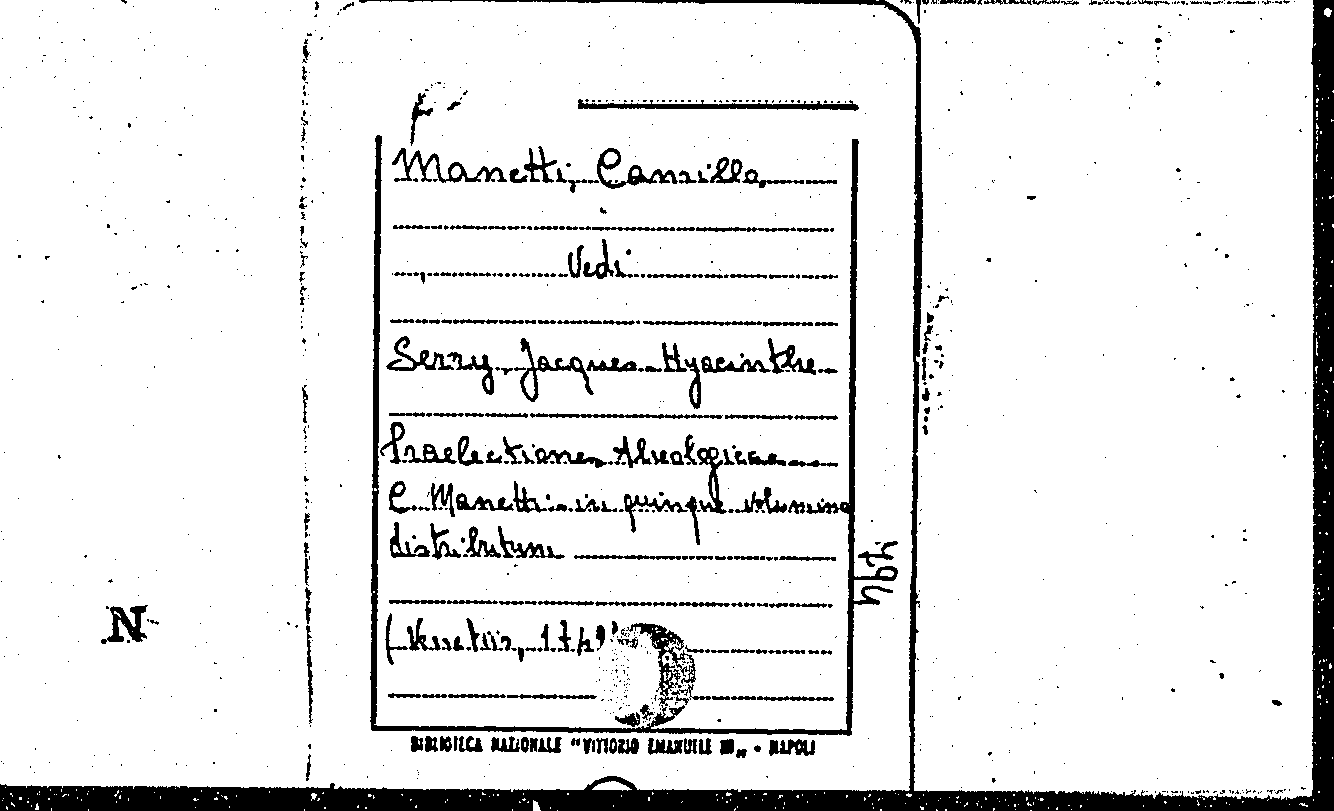 Manetti, Camillo
Vedi
Serry, Jacques-Hyacinthe
Praelectiones theologicae
C. Manetti in quinque volumina
distributum
(Venetiis, 1742)
BIBLIOTECA NAZIONALE "VITTORIO EMANUELE III" - NAPOLI
N